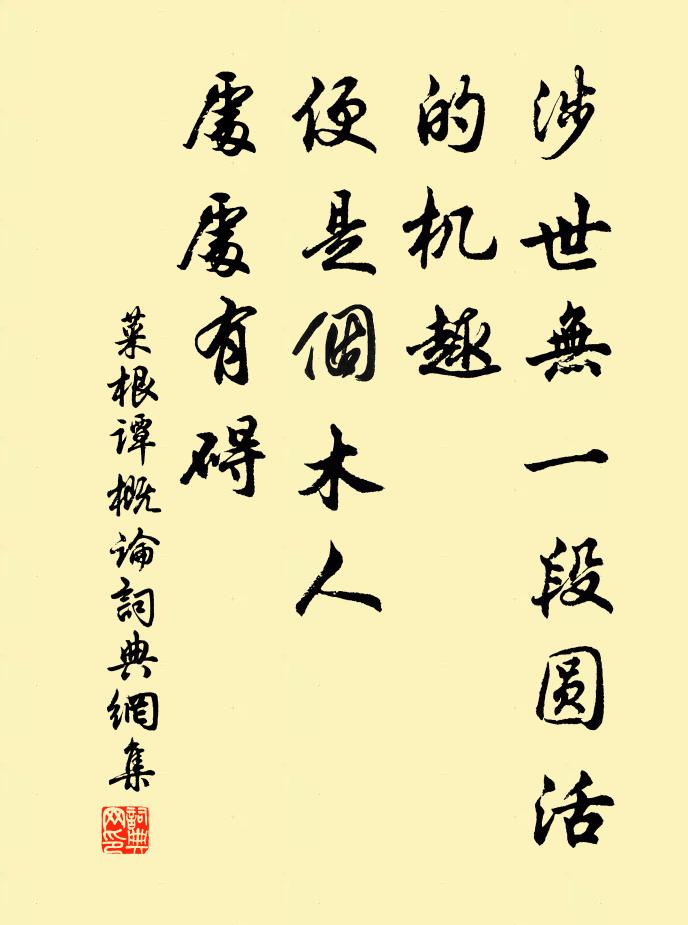 涉世無一段圆活
的机趣
便是個木人
處處有碍
菜根谭概論詞典網集
詞典网印